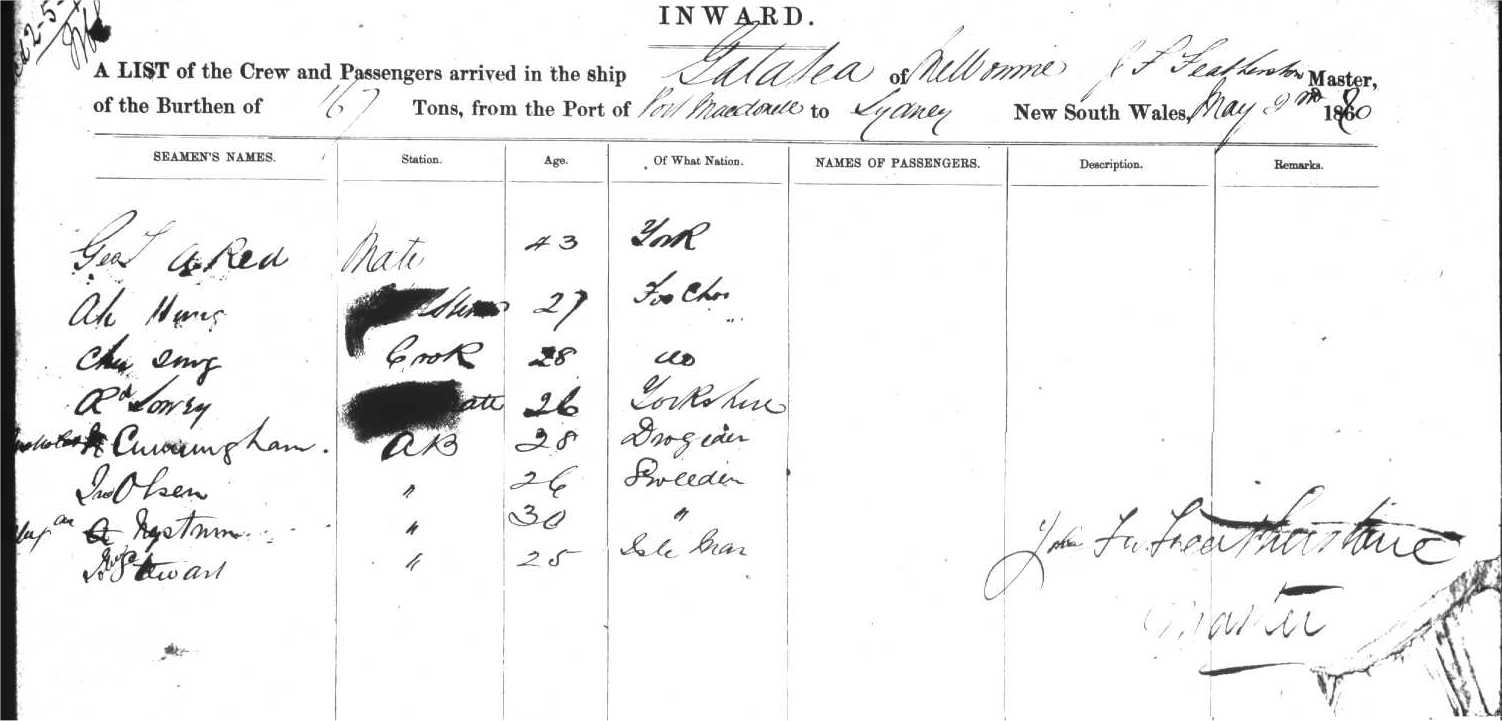 INWARD.
A LIST of the Crew and Passengers arrived in the ship Galatea of Melbourne J F Featherstone Master,
of the Burthen of 167 Tons, from the Port of Port Macdonnell to Sydney New South Wales, May 2nd 1870
SEAMEN'S NAMES. Station. Age. Of What Nation. NAMES OF PASSENGERS. Description. Remarks.
Mate 43 York
Ah Hung 27 Foo Choo
Cook 28 do
Rd Lowry 26 Yorkshire
Cunningham. AB 28 Drogeder
Jno Olsen " 26 Sweeden
Nystrum " 30 "
Stewart " 25 Isle Man
John Featherstone
Master